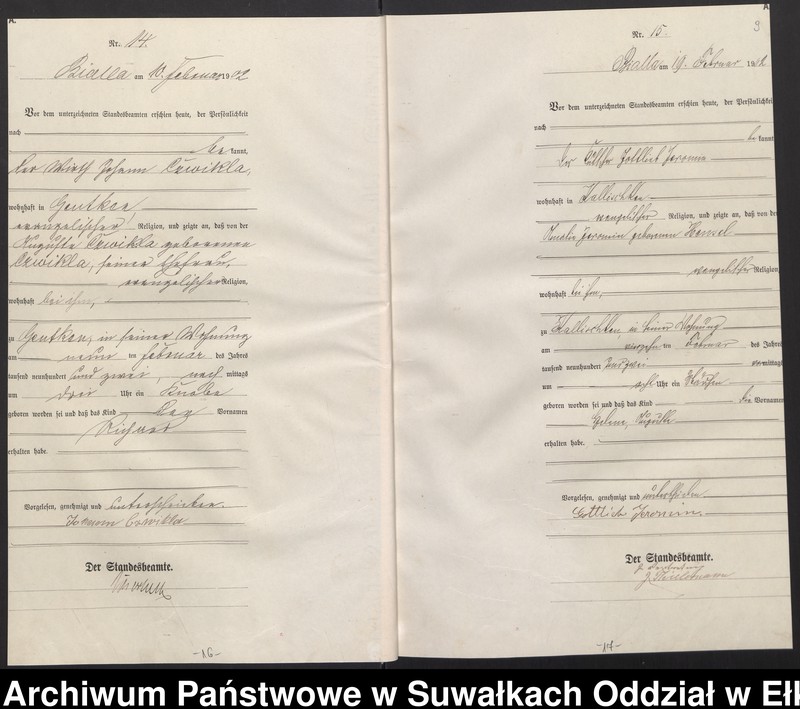 A.
Nr. 14.
Bialla am 10. Februar 1902
Vor dem unterzeichneten Standesbeamten erschien heute, der Persönlichkeit
nach
be kannt,
der Wirth Johann Czwikla,
wohnhaft in Gentken
evangelischer Religion, und zeigte an, daß von der
Auguste Czwikla geborenen
Czwikla, seiner Ehefrau,
evangelischer Religion,
wohnhaft bei ihm,
zu Gentken, in seiner Wohnung
am neun ten Februar des Jahres
tausend neunhundert und zwei, nach mittags
um drei Uhr ein Knabe
geboren worden sei und daß das Kind den Vornamen
Richard
erhalten habe.
Vorgelesen, genehmigt und unterschrieben.
Johann Czwikla
Der Standesbeamte.
-16-
A
9
Nr. 15.
Bialla am 19. Februar 1902
Vor dem unterzeichneten Standesbeamten erschien heute, der Persönlichkeit
nach
be kannt
der Gottlieb Jeromin
wohnhaft in Kallischken
evangelischer Religion, und zeigte an, daß von der
Amalie Jeromin geborenen Hensel
evangelischer Religion,
wohnhaft bei ihm,
zu Kallischken in seiner Wohnung
am vierzehn ten Februar des Jahres
tausend neunhundert und zwei vormittags
um acht Uhr ein Mädchen
geboren worden sei und daß das Kind die Vornamen
Helene, Auguste
erhalten habe.
Vorgelesen, genehmigt und unterschrieben
Gottlieb Jeromin.
Der Standesbeamte.
-17-
Archiwum Państwowe w Suwałkach Oddział w Ełk